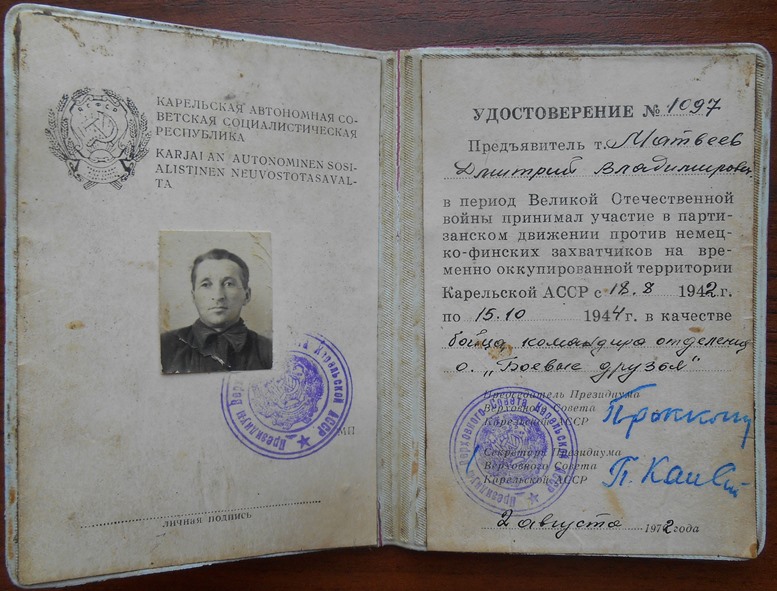 РСФСР
КАРЕЛЬСКАЯ АВТОНОМНАЯ СО-
ВЕТСКАЯ СОЦИАЛИСТИЧЕСКАЯ
РЕСПУБЛИКА
KARJALAN AUTONOMINEN SOSI-
ALISTINEN NEUVOSTOTASAVAL-
TA
Президиум Верховного Совета Карельской АССР
МП
личная подпись
УДОСТОВЕРЕНИЕ № 1097
Предъявитель т. Матвеев
Дмитрий Владимирович
в период Великой Отечественной
войны принимал участие в парти-
занском движении против немец-
ко-финских захватчиков на вре-
менно оккупированной территории
Карельской АССР с 18.8 1942 г.
по 15.10 1944 г. в качестве
бойца, командира отделения
о. „Боевые друзья"
Председатель Президиума
Верховного Совета
Карельской АССР
Секретарь Президиума
Верховного Совета
Карельской АССР
Президиум Верховного Совета Карельской АССР
2 августа 1972 года